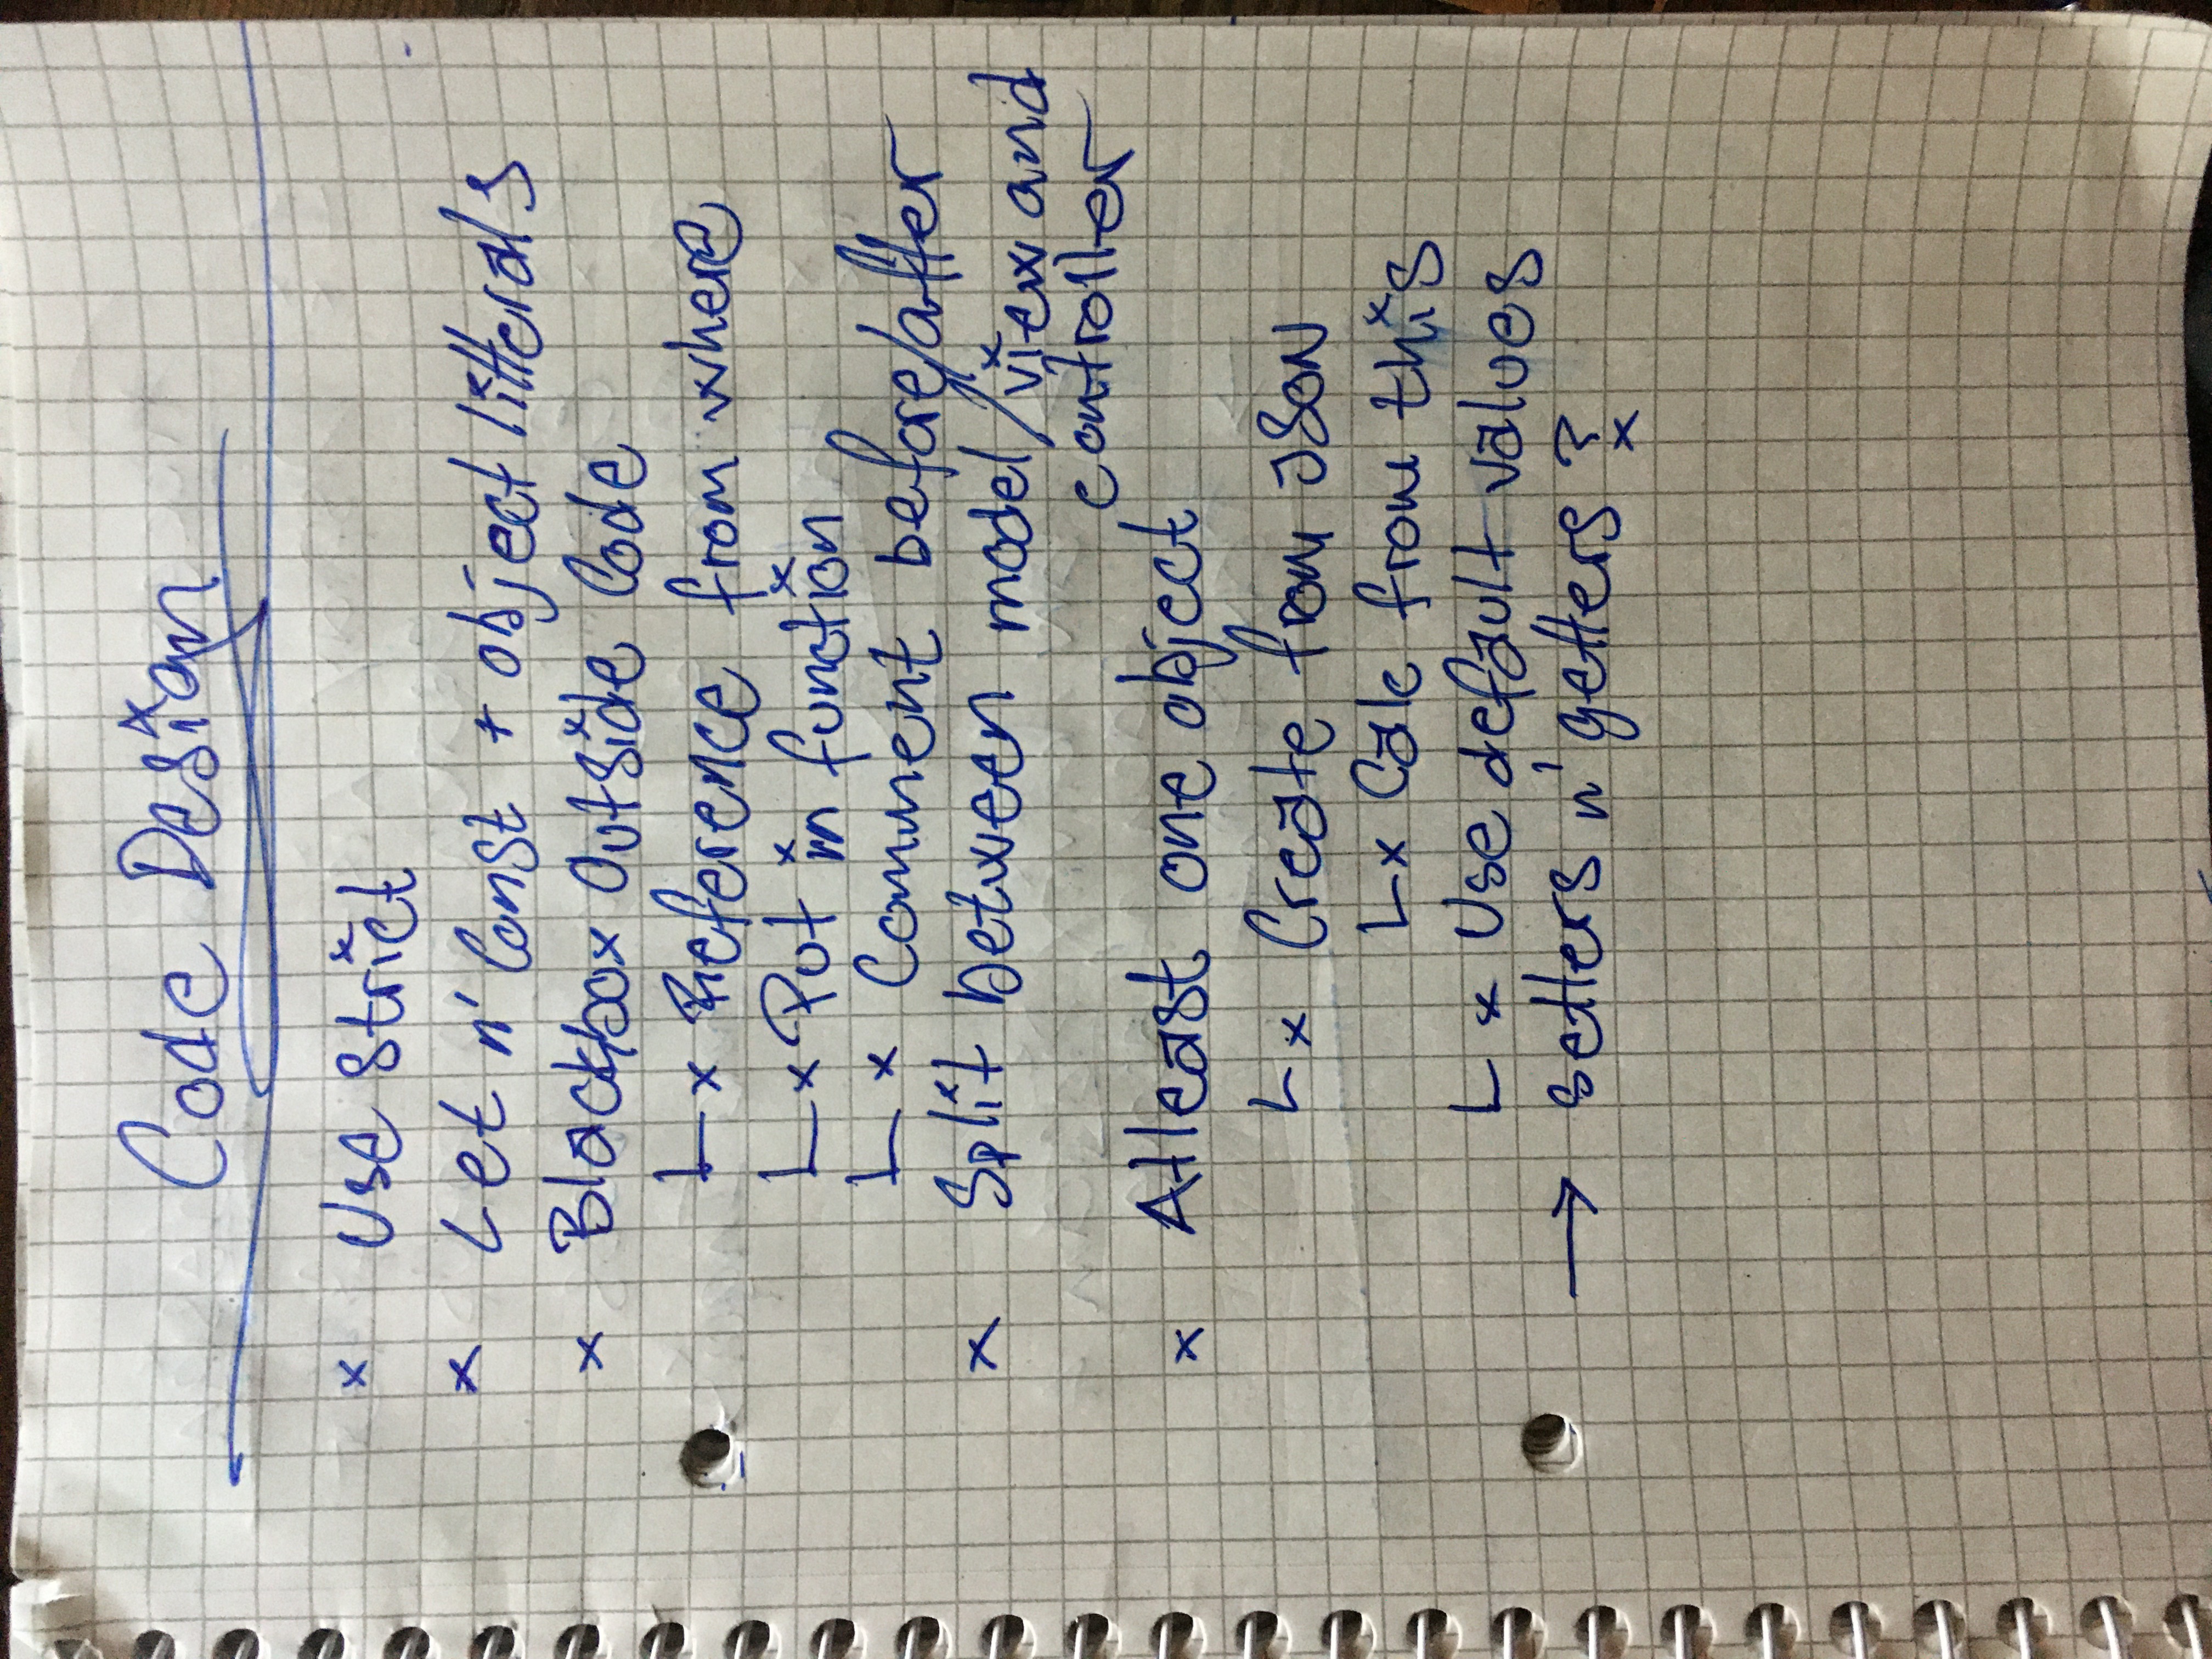 Code Design
x Use strict
x Let n' Const + object litterals
x Blackbox Outside Code
L x Reference from where
L x Put in function
L x Comment before/after
x Split between model/view and
controller
x Atleast one object
L x Create from JSON
L x Calc from this
L x Use default values
→ setters n' getters ?